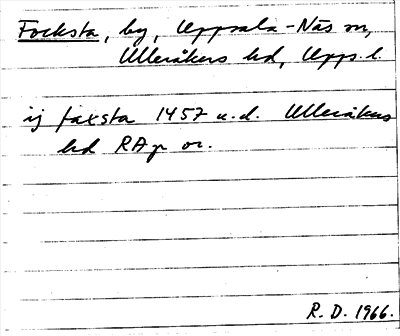 Focksta, by, Uppsala-Näs sn,
Ulleråkers hd, Upps. l.
ij faxsta 1457 u.d. Ulleråkers
hd RAp or.
R. D. 1966.